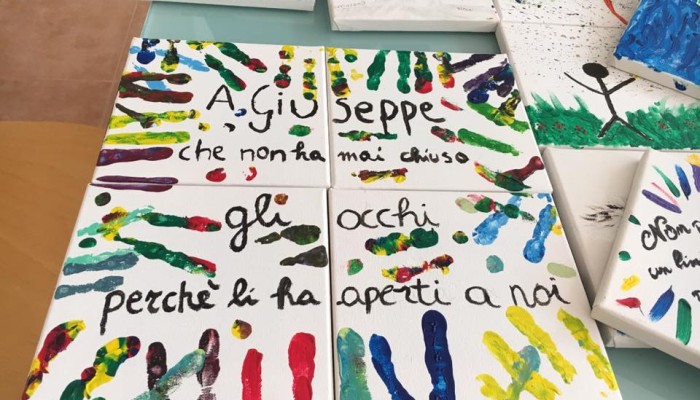 A Giuseppe
che non ha mai chiuso
gli occhi
perchè li ha aperti a noi
Non
un